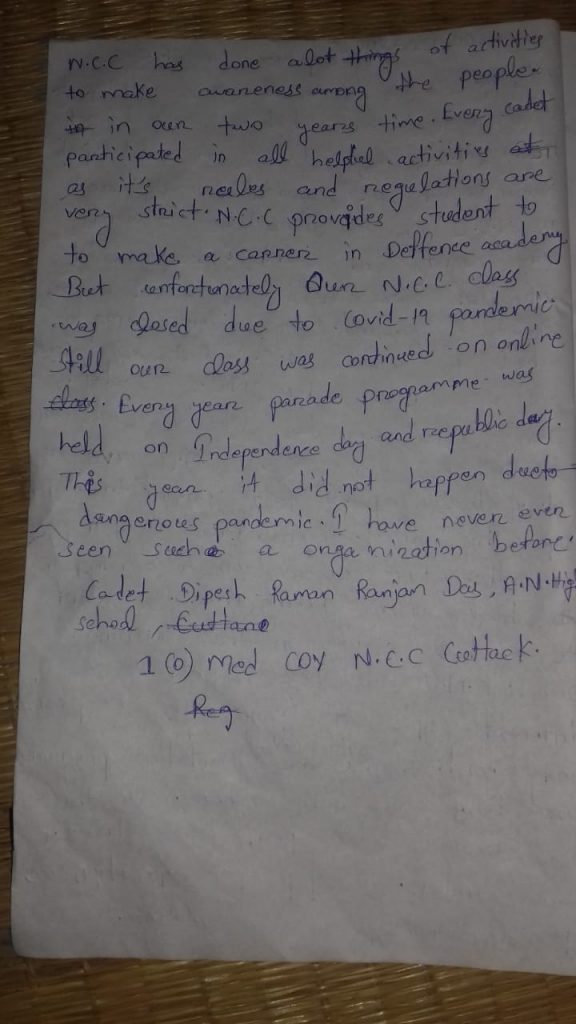 N.C.C has done alot things of activities
to make awareness among the people.
in in our two years time. Every cadet
participated in all helpful activities at
as it's reules and regulations are
very strict. N.C.C provides student to
to make a carrer in Deffence academy
But unfortunately Our N.C.C. class
was closed due to Covid-19 pandemic.
Still our class was continued on online
class. Every year parade programme was
held on Independence day and republic day.
This year it did not happen dueto
dangerous pandemic. I have never ever
seen such a organization before.
Cadet Dipesh Raman Ranjan Das, A.N. High
school, Cuttane
1 (O) Med COY N.C.C Cuttack.
Reg